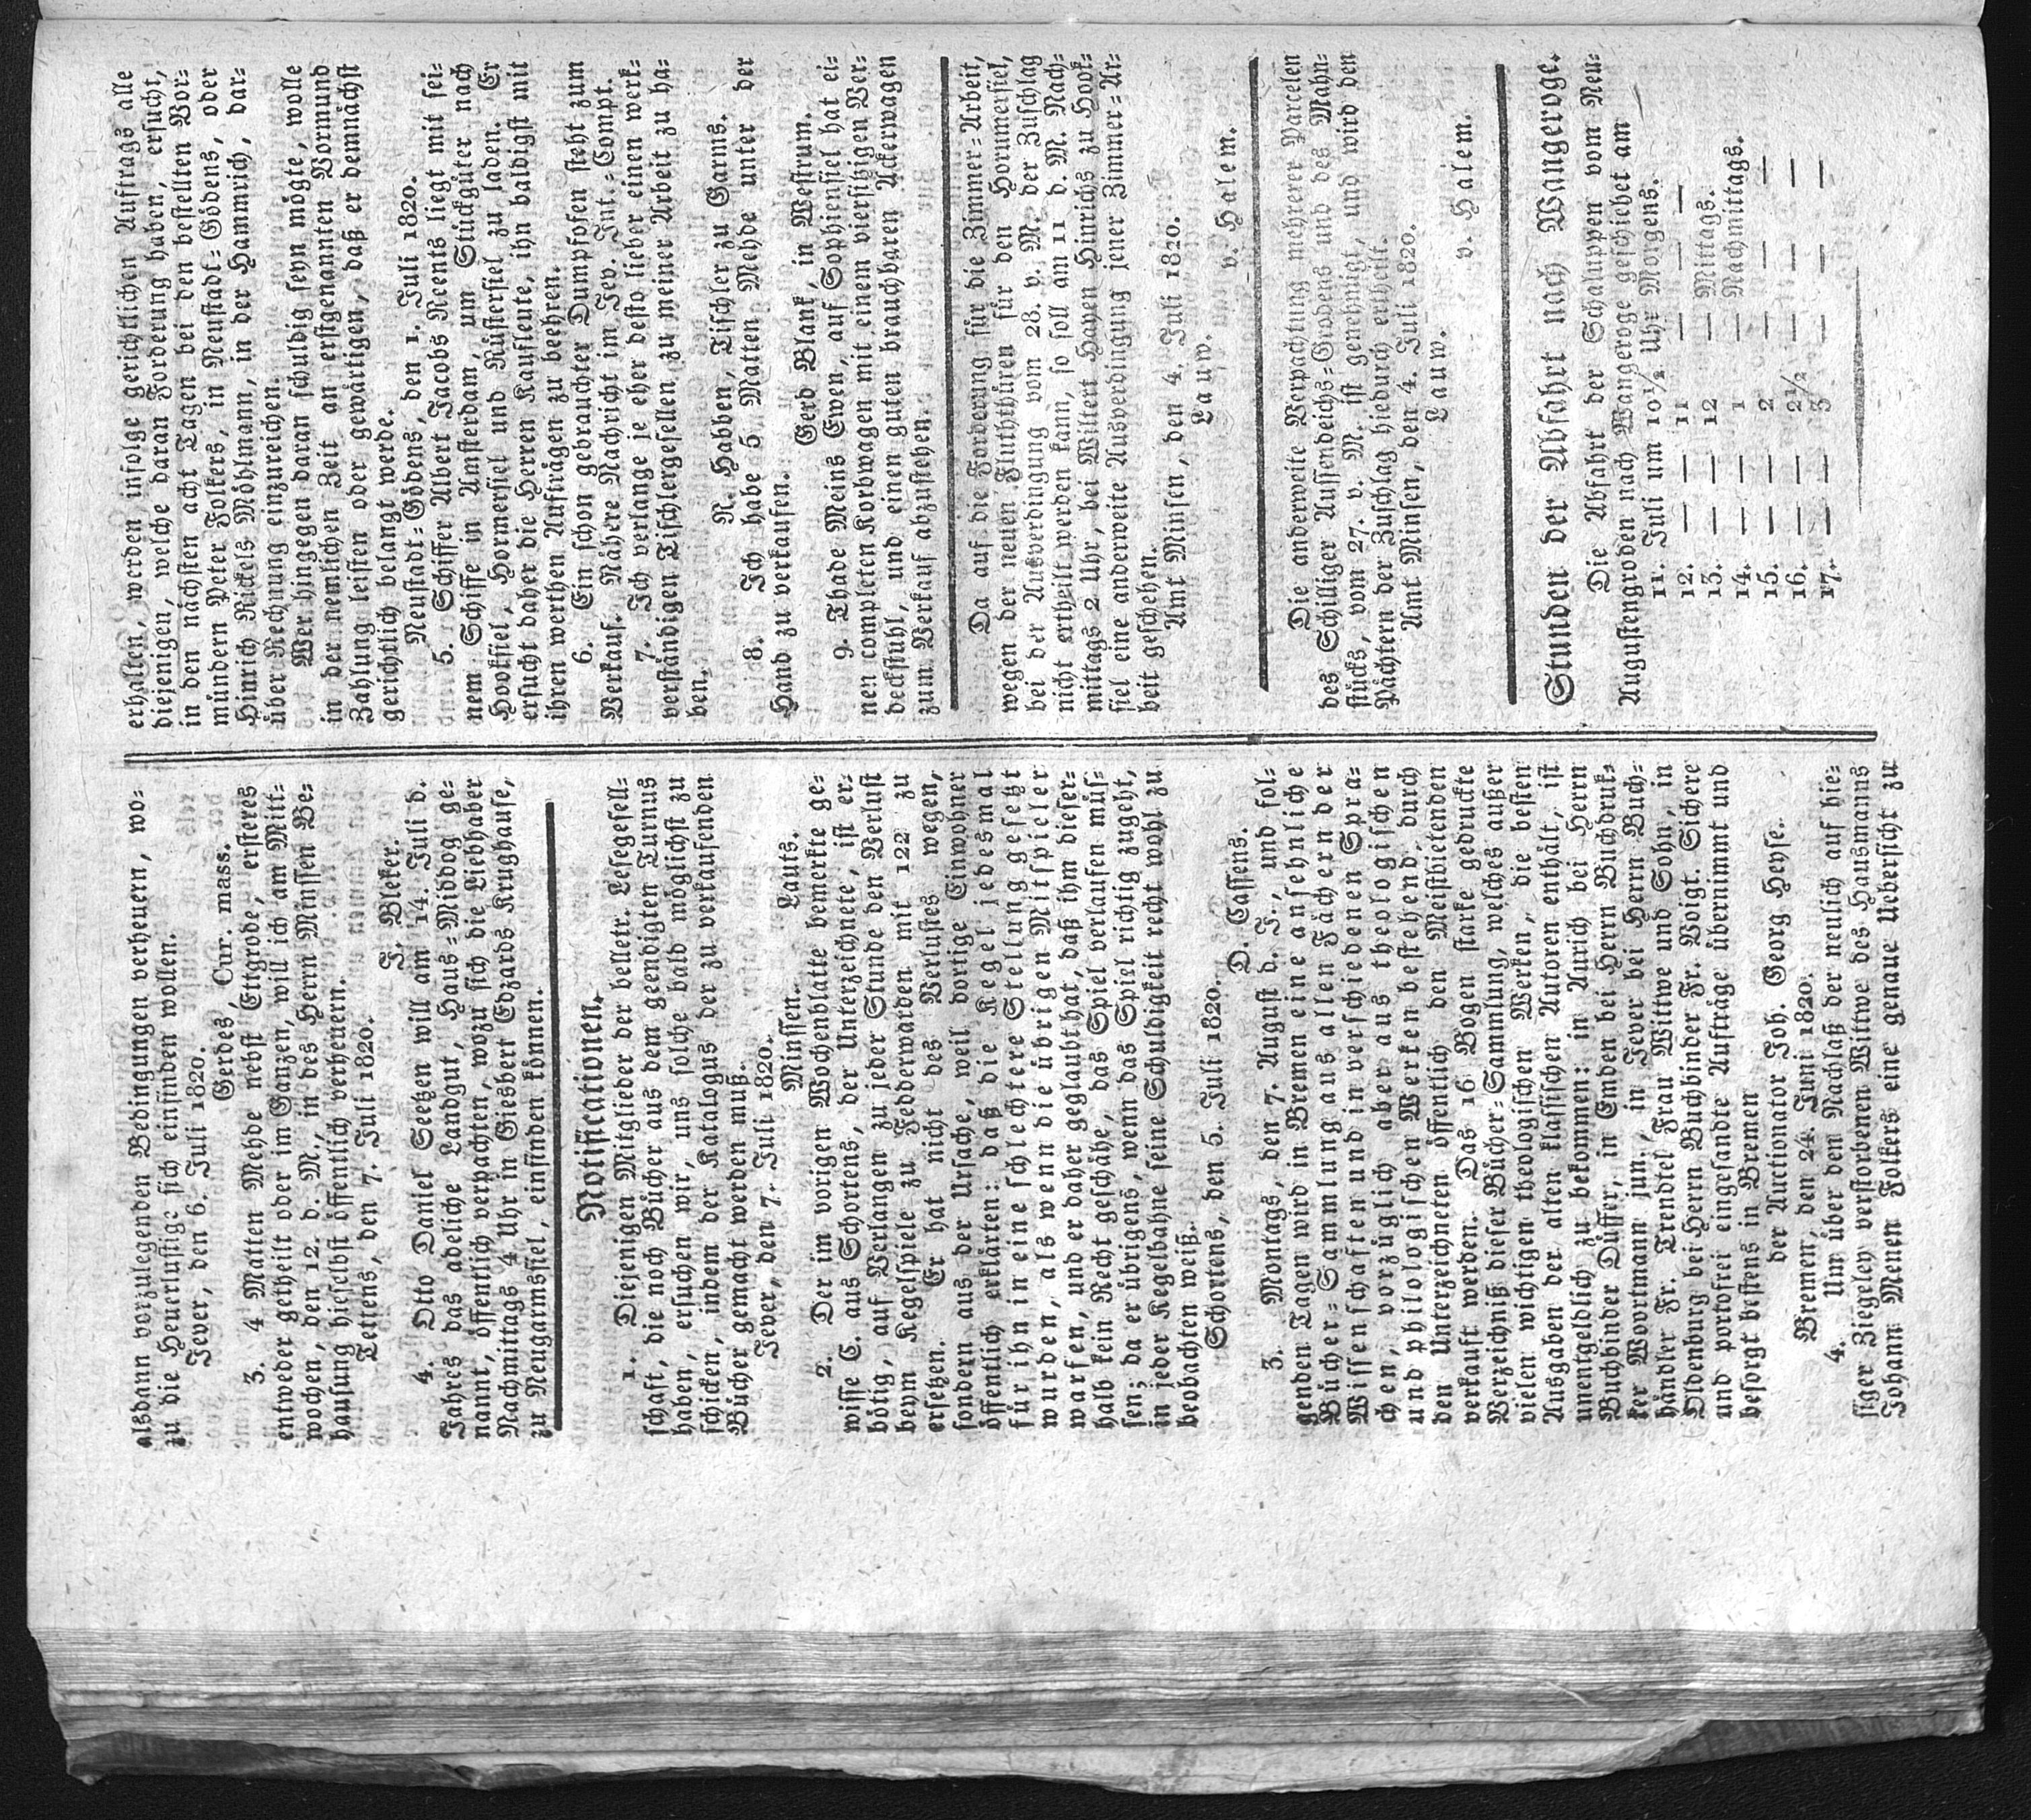 alsdann vorzulegenden Bedingungen verheuern, wo-
zu die Heuerlustige sich einfinden wollen.
Jever, den 6. Juli 1820.
Gerdes, Cur. mass.
3. 4 Matten Mehde nebst Ettgrode, ersteres
entweder getheilt oder im Ganzen, will ich am Mitt-
wochen, den 12. d. M., in des Herrn Minssen Be-
hausung hieselbst öffentlich verheuern.
Tettens, den 7. Juli 1820.
J. Bleker.
4. Otto Daniel Seetzen will am 14. Juli d.
Jahres das adeliche Landgut, Haus-Middog ge-
nannt, öffentlich verpachten, wozu sich die Liebhaber
Nachmittags 4 Uhr in Giesbert Edzards Krughause,
zu Neugarmssiel, einfinden können.
Notificationen.
1. Diejenigen Mitglieder der belletr. Lesegesell-
schaft, die noch Bücher aus dem geendigten Turnus
haben, ersuchen wir, uns solche bald möglichst zu
schicken, indem der Katalogus der zu verkaufenden
Bücher gemacht werden muß.
Jever, den 7. Juli 1820.
Minssen. Lauts.
2. Der im vorigen Wochenblatte bemerkte ge-
wisse C. aus Schortens, der Unterzeichnete, ist er-
bötig, auf Verlangen zu jeder Stunde den Verlust
beym Kegelspiele zu Fedderwarden mit 122 zu
ersetzen. Er hat nicht des Verlustes wegen,
sondern aus der Ursache, weil dortige Einwohner
öffentlich erklärten: daß die Kegel jedesmal
für ihn in eine schlechtere Stellung gesetzt
wurden, als wenn die übrigen Mitspieler
warfen, und er daher geglaubt hat, daß ihm dieser-
halb kein Recht geschähe, das Spiel verlaufen müs-
sen; da er übrigens, wenn das Spiel richtig zugeht,
in jeder Kegelbahne seine Schuldigkeit recht wohl zu
beobachten weiß.
Schortens, den 5. Juli 1820.
D. Cassens.
3. Montags, den 7. August d. J., und fol-
genden Tagen wird in Bremen eine ansehnliche
Bücher-Sammlung aus allen Fächern der
Wissenschaften und in verschiedenen Spra-
chen, vorzüglich aber aus theologischen
und philologischen Werken bestehend, durch
den Unterzeichneten öffentlich den Meistbietenden
verkauft werden. Das 16 Bogen starke gedruckte
Verzeichniß dieser Bücher-Sammlung, welches außer
vielen wichtigen theologischen Werken, die besten
Ausgaben der alten klassischen Autoren enthält, ist
unentgeldlich zu bekommen: in Aurich bei Herrn
Buchbinder Düffer, in Emden bei Herrn Buchdruk-
ker Woortmann jun., in Jever bei Herrn Buch-
händler Fr. Trendtel Frau Wittwe und Sohn, in
Oldenburg bei Herrn Buchbinder Fr. Voigt. Sichere
und portofrei eingesandte Aufträge übernimmt und
besorgt bestens in Bremen
der Auctionator Joh. Georg Heyse.
Bremen, den 24. Juni 1820.
4. Um über den Nachlaß der neulich auf hie-
siger Ziegeley verstorbenen Wittwe des Hausmanns
Johann Menen Folkers eine genaue Uebersicht zu
erhalten, werden infolge gerichtlichen Auftrags alle
diejenigen, welche daran Forderung haben, ersucht,
in den nächsten acht Tagen bei den bestellten Vor-
mündern Peter Folkers, in Neustadt-Gödens, oder
Hinrich Rickels Möhlmann, in der Hammrich, dar-
über Rechnung einzureichen.
Wer hingegen daran schuldig seyn mögte, wolle
in der nemlichen Zeit an erstgenannten Vormund
Zahlung leisten oder gewärtigen, daß er demnächst
gerichtlich belangt werde.
Neustadt-Gödens, den 1. Juli 1820.
5. Schiffer Albert Jacobs Reents liegt mit sei-
nem Schiffe in Amsterdam, um Stückgüter nach
Hooksiel, Hormersiel und Rüstersiel zu laden. Er
ersucht daher die Herren Kaufleute, ihn baldigst mit
ihren werthen Aufträgen zu beehren.
6. Ein schon gebrauchter Dumpfofen steht zum
Verkauf. Nähere Nachricht im Jev. Int.-Compt.
7. Ich verlange je eher desto lieber einen werk-
verständigen Tischlergesellen zu meiner Arbeit zu ha-
ben.
R. Habben, Tischler zu Garms.
8. Ich habe 5 Matten Mehde unter der
Hand zu verkaufen.
Gerd Blank, in Westrum.
9. Thade Meins Ewen, auf Sophiensiel hat ei-
nen completen Korbwagen mit einem viersitzigen Ver-
deckstuhl, und einen guten brauchbaren Ackerwagen
zum Verkauf abzustehen.
Da auf die Forderung für die Zimmer-Arbeit,
wegen der neuen Fluththüren für den Horumersiel,
bei der Ausverdingung vom 28. v. M. der Zuschlag
nicht ertheilt werden kann, so soll am 11 d. M. Nach-
mittags 2 Uhr, bei Wiltert Hayen Hinrichs zu Hook-
siel eine anderweite Ausverdingung jener Zimmer-Ar-
beit geschehen.
Amt Minsen, den 4. Juli 1820.
Lauw. v. Halem.
Die anderweite Verpachtung mehrerer Parcelen
des Schilliger Aussendeichs-Grodens und des Mahn-
stücks, vom 27. v. M. ist genehmigt, und wird den
Pächtern der Zuschlag hiedurch ertheilt.
Amt Minsen, den 4. Juli 1820.
Lauw. v. Halem.
Stunden der Abfahrt nach Wangeroge.
Die Abfahrt der Schaluppen vom Neu-
Augustengroden nach Wangeroge geschiehet am
11. Juli um 10½ Uhr Morgens.
12. — — 11 — — —
13. — — 12 — Mittags.
14. — — 1 — Nachmittags.
15. — — 2 — — —
16. — — 2½ — — —
17. — — 3 — — —